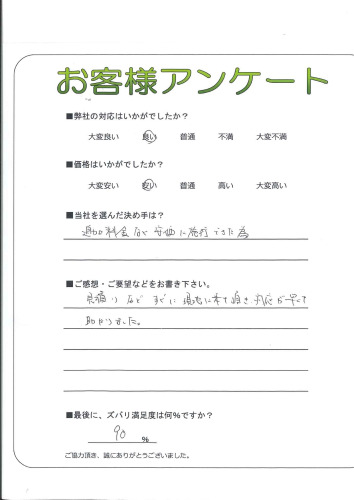 お客様アンケート
■弊社の対応はいかがでしたか?
大変良い 良い 普通 不満 大変不満
■価格はいかがでしたか?
大変安い 安い 普通 高い 大変高い
■当社を選んだ決め手は?
追加料金なく安価に施行できた為
■ご感想・ご要望などをお書き下さい。
見積りなど すぐに現地に来て頂き、対応が早くて
助かりました。
■最後に、ズバリ満足度は何%ですか?
90 %
ご協力頂き、誠にありがとうございました。